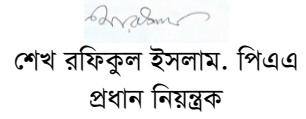 শেখ রফিকুল ইসলাম. পিএএ
প্রধান নিয়ন্ত্রক